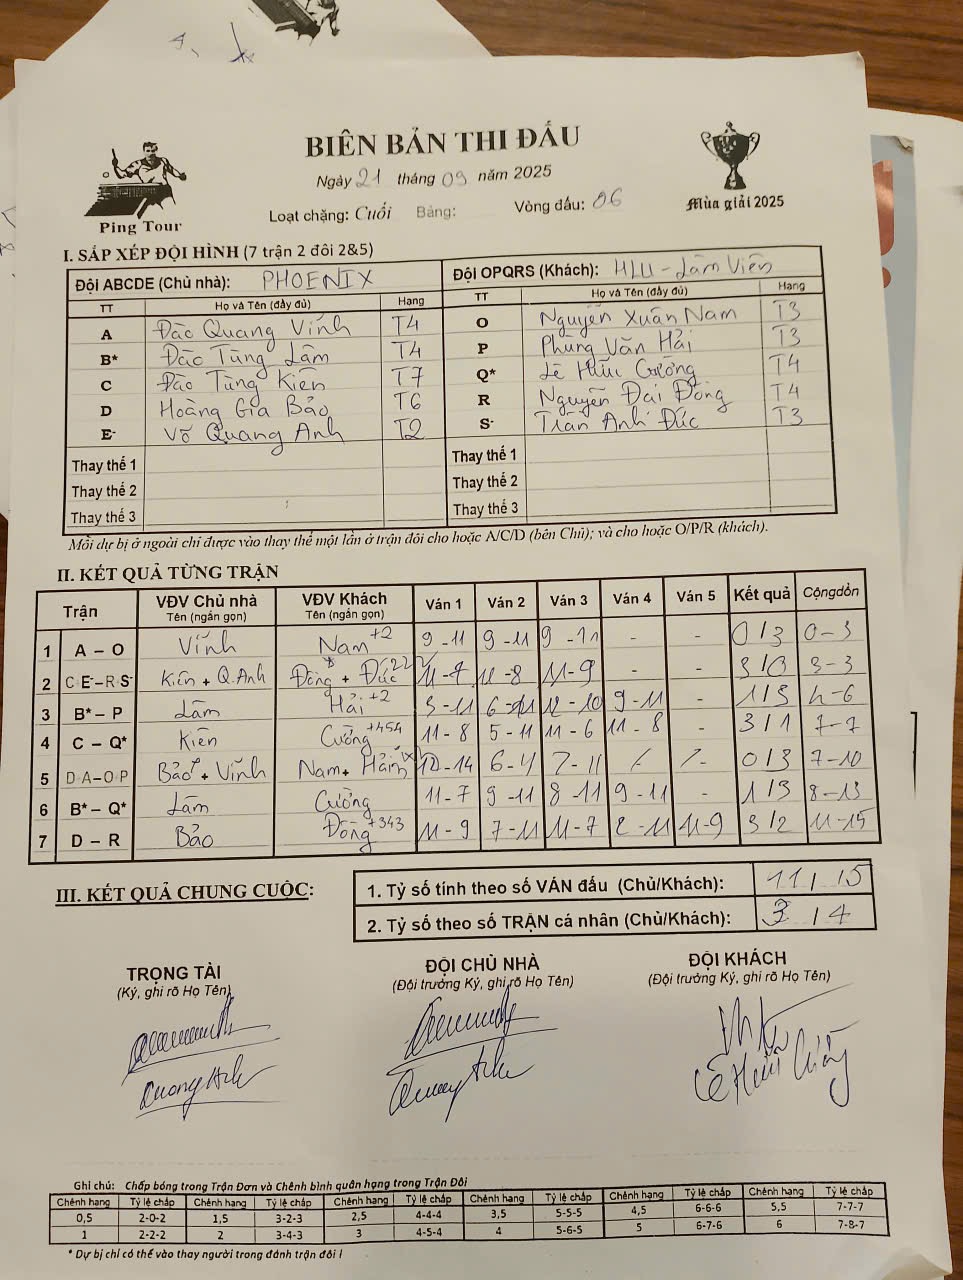 BIÊN BẢN THI ĐẤU
Ngày 21 tháng 09 năm 2025
Loạt chặng: Cuối Bảng: Vòng đấu: 06
Ping Tour
Mùa giải 2025
I. SẮP XẾP ĐỘI HÌNH (7 trận 2 đôi 2&5)
Đội ABCDE (Chủ nhà): PHOENIX Đội OPQRS (Khách): HLU - Lâm Viên
TT Họ và Tên (đầy đủ) Hạng TT Họ và Tên (đầy đủ) Hạng
A Đào Quang Vinh T4 O Nguyễn Xuân Nam T3
B* Đào Tùng Lâm T4 P Phùng Văn Hải T3
C Đào Tùng Kiên T7 Q* Lê Hữu Cường T4
D Hoàng Gia Bảo T6 R Nguyễn Đại Đồng T4
E- Võ Quang Anh T2 S- Trần Anh Đức T3
Thay thế 1 Thay thế 1
Thay thế 2 Thay thế 2
Thay thế 3 Thay thế 3
Mỗi dự bị ở ngoài chỉ được vào thay thế một lần ở trận đôi cho hoặc A/C/D (bên Chủ); và cho hoặc O/P/R (khách).
II. KẾT QUẢ TỪNG TRẬN
Trận VĐV Chủ nhà Tên (ngắn gọn) VĐV Khách Tên (ngắn gọn) Ván 1 Ván 2 Ván 3 Ván 4 Ván 5 Kết quả Cộngdồn
1 A – O Vinh Nam +2 9 - 11 9 - 11 9 - 11 - - 0 / 3 0 - 3
2 C E- – R S- Kiên + Q.Anh Đồng + Đức 11 - 7 11 - 8 11 - 9 - - 3 / 0 3 - 3
3 B* – P Lâm Hải +2 5 - 11 6 - 11 12 - 10 9 - 11 - 1 / 3 4 - 6
4 C – Q* Kiên Cường +454 11 - 8 5 - 11 11 - 6 11 - 8 - 3 / 1 7 - 7
5 D A – O P Bảo + Vinh Nam + Hải 12 - 14 6 - 11 7 - 11 0 / 3 7 - 10
6 B* – Q* Lâm Cường 11 - 7 9 - 11 8 - 11 9 - 11 - 1 / 3 8 - 13
7 D – R Bảo Đồng +343 11 - 9 7 - 11 11 - 7 2 - 11 11 - 9 3 / 2 11 - 15
III. KẾT QUẢ CHUNG CUỘC:
1. Tỷ số tính theo số VÁN đấu (Chủ/Khách): 11 / 15
2. Tỷ số theo số TRẬN cá nhân (Chủ/Khách): 3 / 4
TRỌNG TÀI ĐỘI CHỦ NHÀ ĐỘI KHÁCH
(Ký, ghi rõ Họ Tên) (Đội trưởng Ký, ghi rõ Họ Tên) (Đội trưởng Ký, ghi rõ Họ Tên)
Quang Anh Quang Anh Lê Hữu Cường
Ghi chú: Chấp bóng trong Trận Đơn và Chênh bình quân hạng trong Trận Đôi
Chênh hạng Tỷ lệ chấp Chênh hạng Tỷ lệ chấp Chênh hạng Tỷ lệ chấp Chênh hạng Tỷ lệ chấp Chênh hạng Tỷ lệ chấp Chênh hạng Tỷ lệ chấp
0,5 2-0-2 1,5 3-2-3 2,5 4-4-4 3,5 5-5-5 4,5 6-6-6 5,5 7-7-7
1 2-2-2 2 3-4-3 3 4-5-4 4 5-6-5 5 6-7-6 6 7-8-7
* Dự bị chỉ có thể vào thay người trong đánh trận đôi !